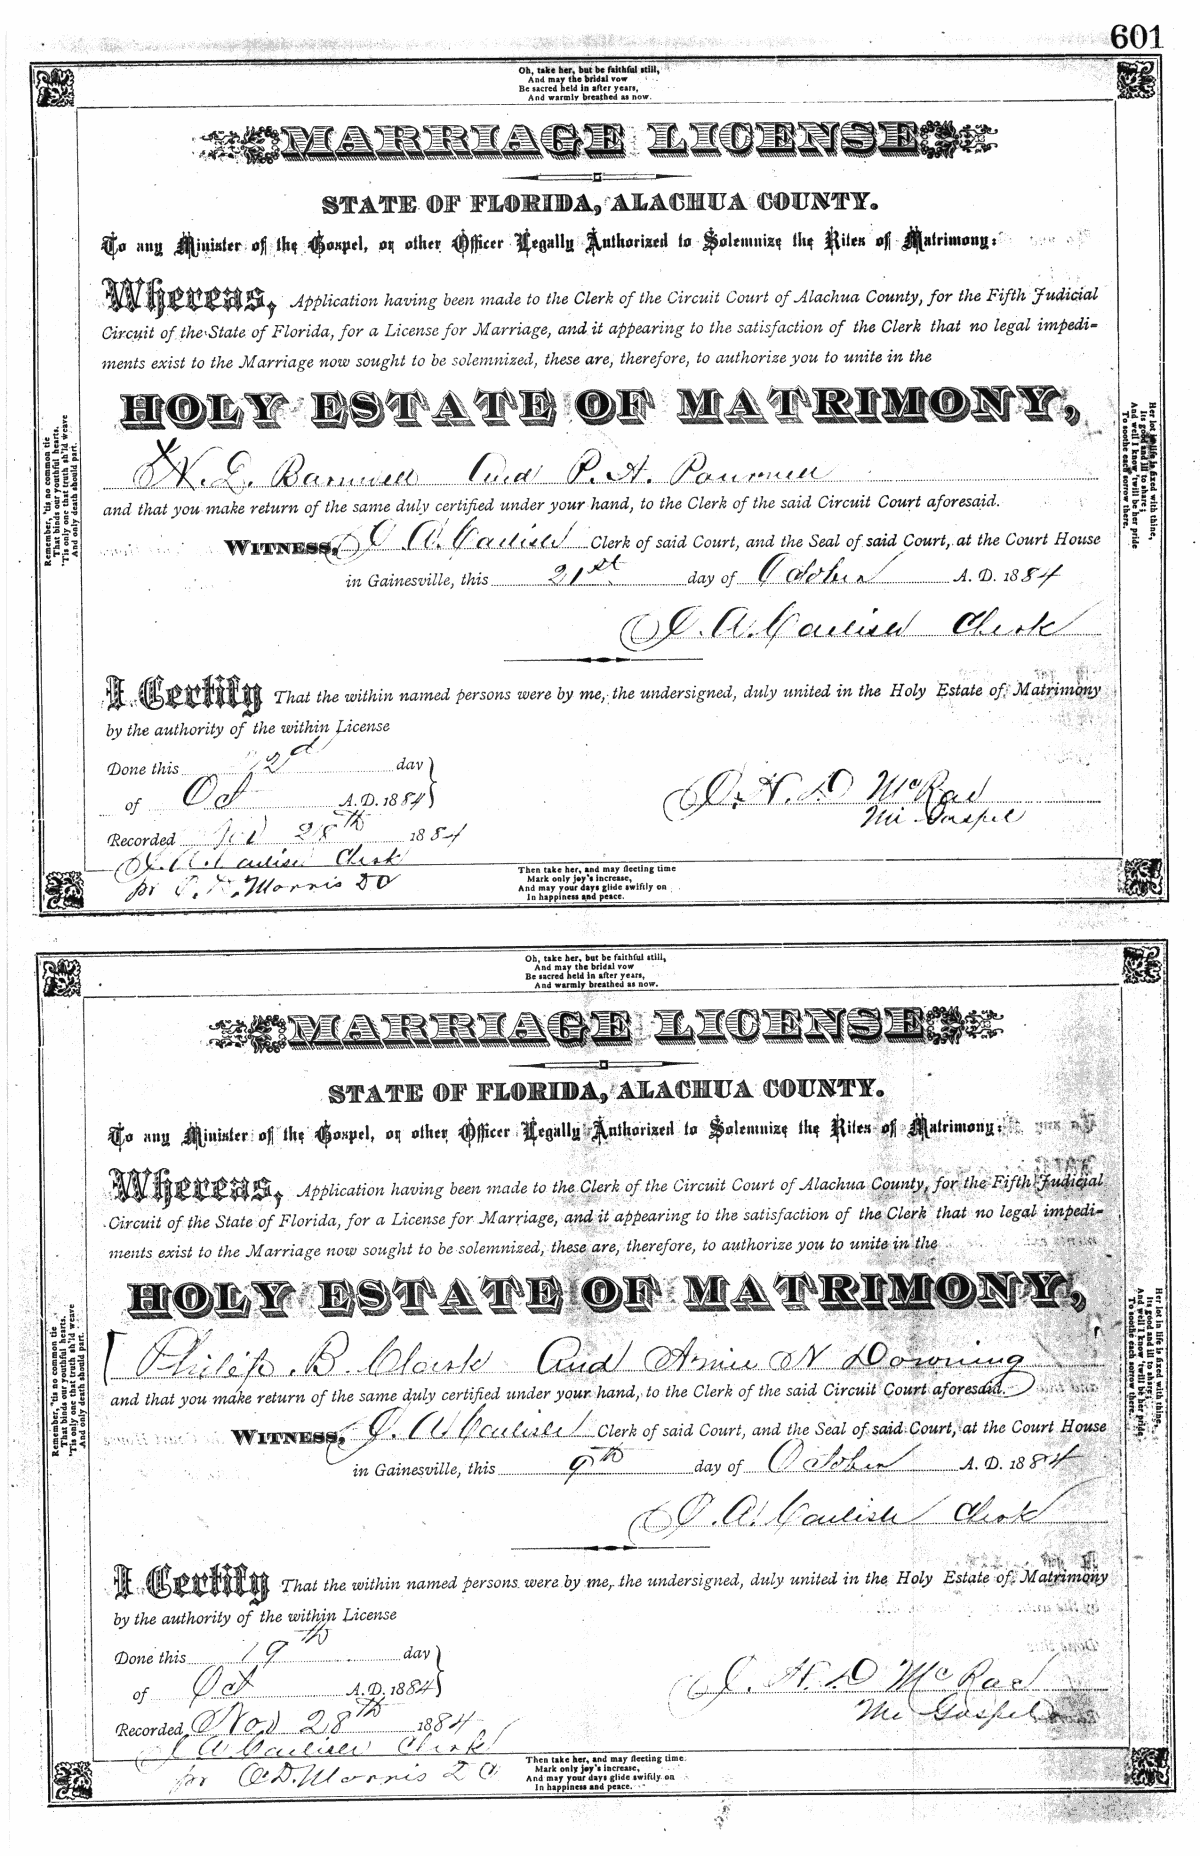 601
Oh, take her, but be faithful still,
And may the bridal vow
Be sacred held in after years,
And warmly breathed as now.
MARRIAGE LICENSE
STATE OF FLORIDA, ALACHUA COUNTY.
To any Minister of the Gospel, or other Officer Legally Authorized to Solemnize the Rites of Matrimony:
Whereas, Application having been made to the Clerk of the Circuit Court of Alachua County, for the Fifth Judicial
Circuit of the State of Florida, for a License for Marriage, and it appearing to the satisfaction of the Clerk that no legal impedi-
ments exist to the Marriage now sought to be solemnized, these are, therefore, to authorize you to unite in the
HOLY ESTATE OF MATRIMONY,
N. L. Barnwell And P. A.
and that you make return of the same duly certified under your hand, to the Clerk of the said Circuit Court aforesaid.
WITNESS, J. A. Carlisle Clerk of said Court, and the Seal of said Court, at the Court House
in Gainesville, this 21st day of October A. D. 1884
J. A. Carlisle Clerk
I Certify That the within named persons were by me, the undersigned, duly united in the Holy Estate of Matrimony
by the authority of the within License
Done this 22d day
of Oct A. D. 1884
J. H. D McRae
Mi Gospel
Recorded Nov 28th 1884
J. A. Carlisle Clerk
pr C. D. Morris D C
Remember, 'tis no common tie
That binds our youthful hearts,
'Tis only one that truth sh'ld weave
And only death should part.
Her lot in life is fixed with thine,
Its good and ill to share;
And well I know 'twill be her pride
To soothe each sorrow there.
Then take her, and may fleeting time
Mark only joy's increase,
And may your days glide swiftly on
In happiness and peace.
Oh, take her, but be faithful still,
And may the bridal vow
Be sacred held in after years,
And warmly breathed as now.
MARRIAGE LICENSE
STATE OF FLORIDA, ALACHUA COUNTY.
To any Minister of the Gospel, or other Officer Legally Authorized to Solemnize the Rites of Matrimony:
Whereas, Application having been made to the Clerk of the Circuit Court of Alachua County, for the Fifth Judicial
Circuit of the State of Florida, for a License for Marriage, and it appearing to the satisfaction of the Clerk that no legal impedi-
ments exist to the Marriage now sought to be solemnized, these are, therefore, to authorize you to unite in the
HOLY ESTATE OF MATRIMONY,
Philip B. Clark And Annie N Downing
and that you make return of the same duly certified under your hand, to the Clerk of the said Circuit Court aforesaid.
WITNESS, J. A. Carlisle Clerk of said Court, and the Seal of said Court, at the Court House
in Gainesville, this 9th day of October A. D. 1884
J. A. Carlisle Clerk
I Certify That the within named persons were by me, the undersigned, duly united in the Holy Estate of Matrimony
by the authority of the within License
Done this 19th day
of Oct A. D. 1884
J. H. D McRae
Mi Gospel
Recorded Nov 28th 1884
J A Carlisle Clerk
pr C D. Morris D C
Remember, 'tis no common tie
That binds our youthful hearts,
'Tis only one that truth sh'ld weave
And only death should part.
Her lot in life is fixed with thine,
Its good and ill to share;
And well I know 'twill be her pride
To soothe each sorrow there.
Then take her, and may fleeting time
Mark only joy's increase,
And may your days glide swiftly on
In happiness and peace.